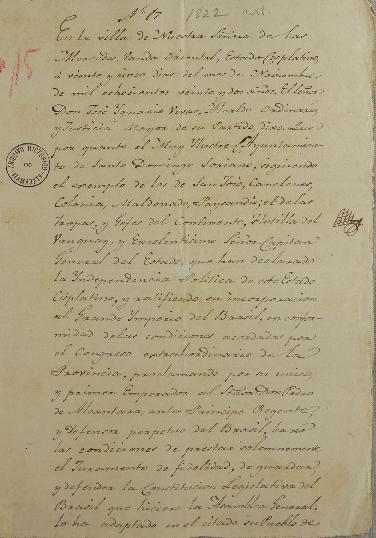 Nº 17 1822
115
En la villa de Nuestra Señora de las
Mercedes, Vanda Oriental, Estado Cisplatino,
á veinte y cinco dias del mes de Noviembre
de mil ochocientos veinte y dos años. El Señor
Don José Ignacio Vivas, Alcalde Ordinario
y Justicia Mayor de su Partido, dixo: Que
por quanto el Muy Ilustre Ayuntamiento
de Santo Domingo Soriano, siguiendo
el exemplo de los de San José, Canelones,
Colonia, Maldonado, Paysandú; el de las
tropas, y Gefes del Continente, Flotilla del
Uruguay, y Excelentisimo Señor Capitan
General del Estado, que han declarado
la Independencia Politica de este Estado
Cisplatino, y ratificado su incorporacion
al Grande Imperio del Brasil, en confor-
midad de las condiciones acordadas por
el Congreso extraordinario de la
Provincia, proclamando por su unico,
y primer Emperador al Señor Don Pedro
de Alcantara, antes Principe Regente,
y Defensor perpetuo del Brasil, baxo
las condiciones de prestar solemnemente
el Juramento de fidelidad, de guardar,
y defender la Constitucion Legislativa del
Brasil que hiciere la Asamblea General,
lo ha adaptado en el citado su Pueblo de